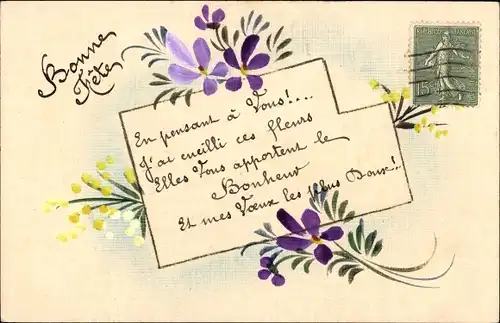 Bonne
Fête
En pensant à Vous!...
J'ai cueilli ces fleurs
Elles Vous apportent le
Bonheur
Et mes Vœux les plus Doux!..
REPUBLIQUE FRANÇAISE
15